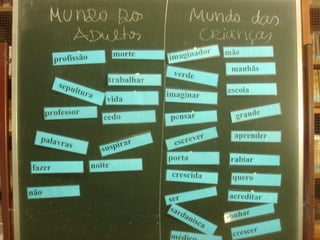 MUNDO DOS
ADULTOS
profissão
morte
trabalhar
sepultura
vida
professor
cedo
palavras
suspirar
fazer
noite
não
MUNDO DAS
CRIANÇAS
imaginador
mãe
verde
manhãs
imaginar
escola
pensar
grande
escrever
aprender
porta
rabiar
crescida
quero
ser
acreditar
sardanisca
sonhar
médico
crescer